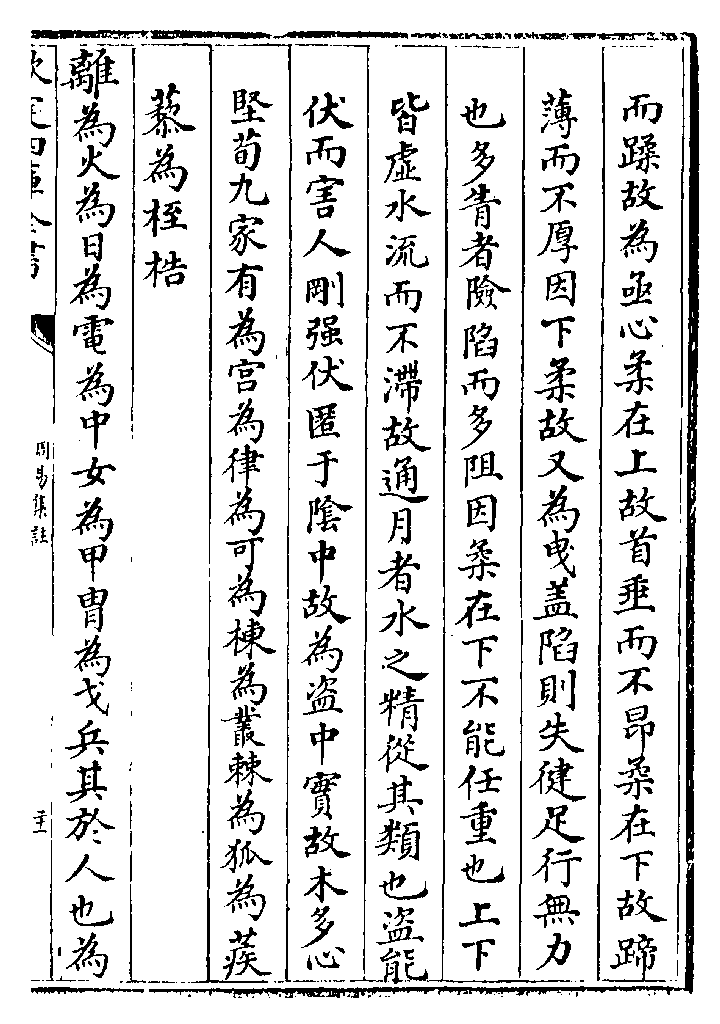 而躁故為亟心柔在上故首垂而不昂柔在下故蹄
薄而不厚因下柔故又為曳盖陷則失健足行無力
也多眚者險陷而多阻因柔在下不能任重也上下
皆虛水流而不滯故通月者水之精從其類也盜能
伏而害人剛强伏匿于陰中故為盗中實故木多心
堅荀九家有為宫為律為可為棟為叢棘為狐為蒺
蔾為桎梏
離為火為日為電為中女為甲胄為戈兵其於人也為
欽定四庫全書
周易集註